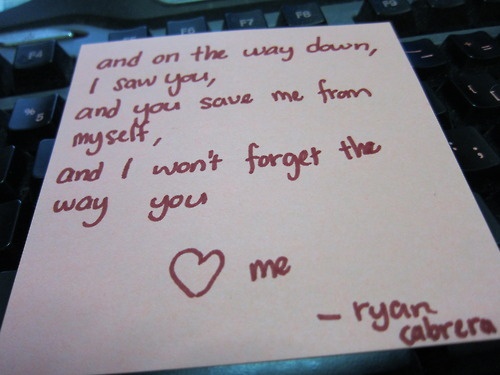 and on the way down,
I saw you,
and you save me from
myself,
and I won't forget the
way you
♡ me
- ryan
cabrera
F4
F6
F7
F8
F9
%
5